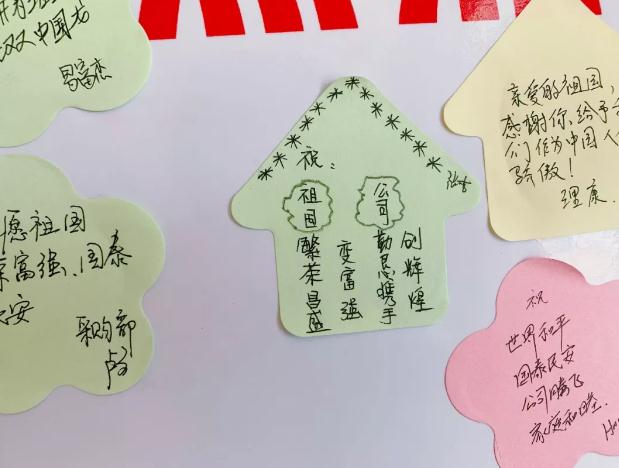 双双中国龙
愿祖国
富强、国泰
安
采购部
祝：
祖国
繁荣昌盛
变富强
公司
勤恳携手
创辉煌
亲爱的祖国，
感谢你、给予
们作为中国人
骄傲！
理康
祝
世界和平
国泰民安
公司腾飞
家庭和睦.